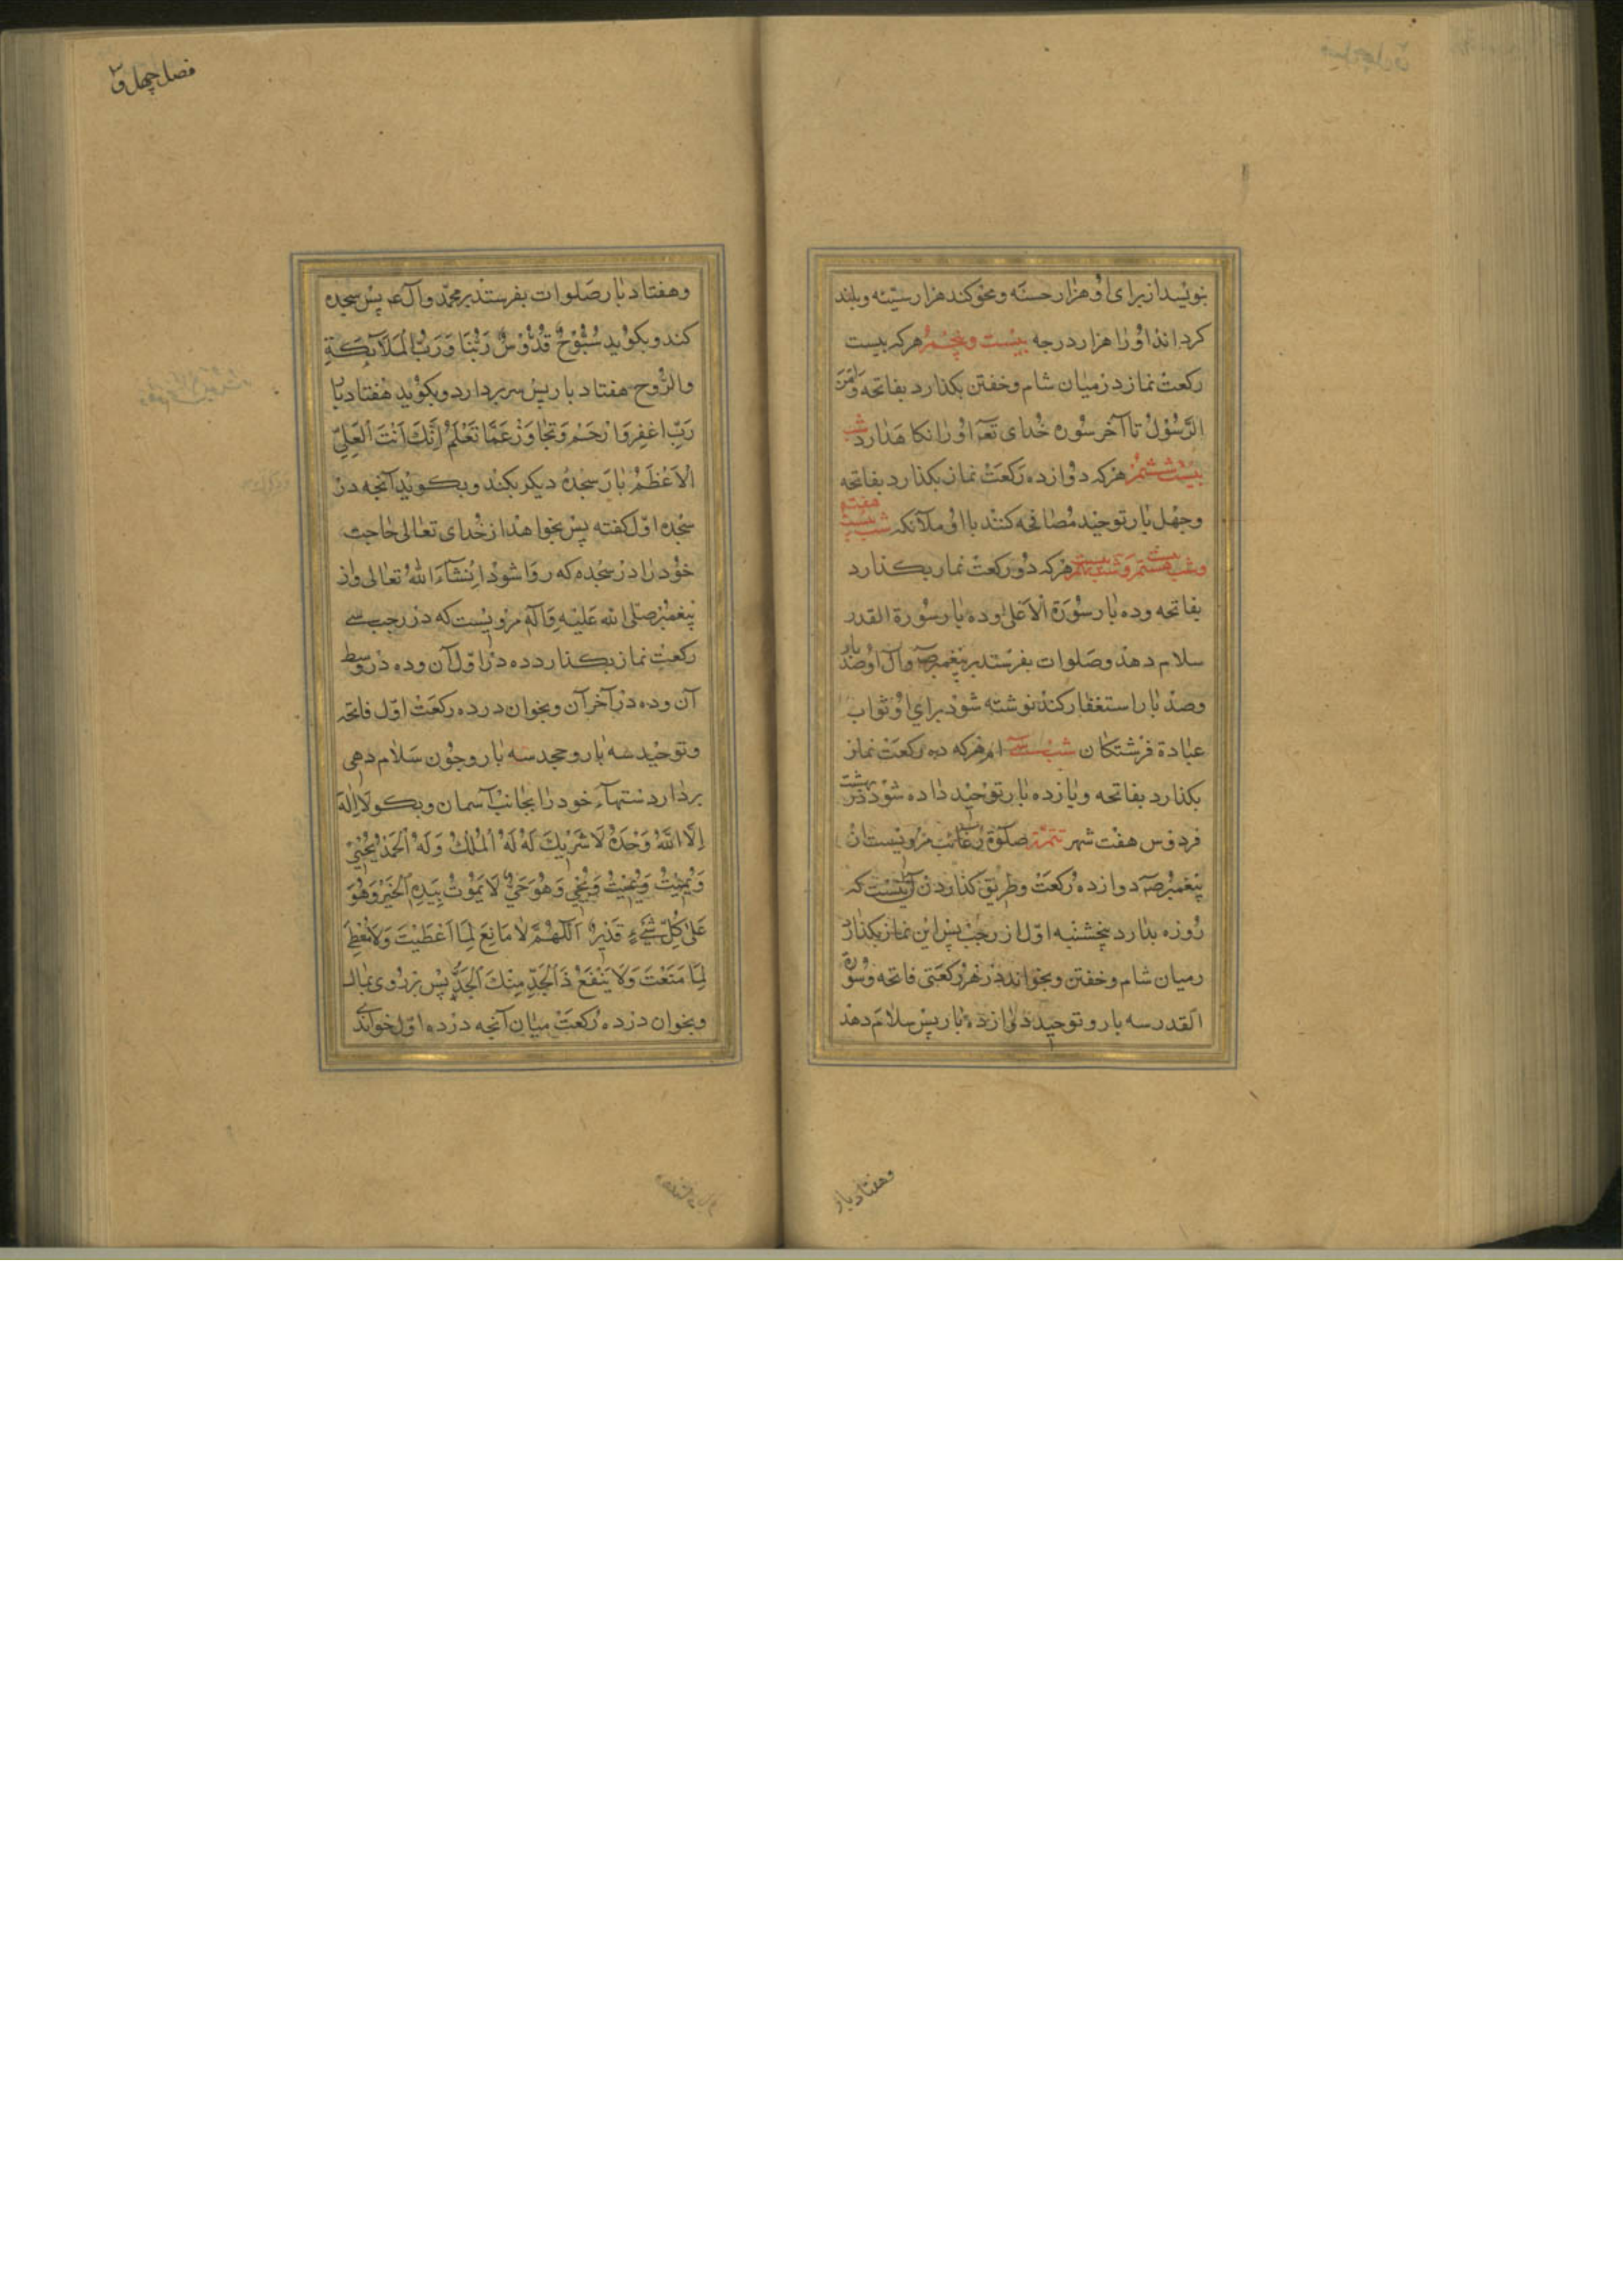 بنویسد از برای او هزار حسنه و محو کند هزار سیّئه و بلند
کرداند او را هزار درجه بیست و پنجم هر که بیست
رکعت نماز در میان شام و خفتن بکذارد بفاتحه و آمن
الرّسول تا آخر سوره خدای تعَ او را نکاهدارد شب
بیست ششم هر که دوازده رکعت نماز بکذارد بفاتحه
و چهل بار توحید مُصافحه کنند با او ملآئکه شب بیست هفتم
و شب بیست هشتم و شب بیست نهم هر که دو رکعت نماز بکذارد
بفاتحه و ده بار سورَة الاَعلی و ده بار سورة القدر
سلام دهد و صَلوات بفرستد بر پیغمبر صَ و آل او صد بار
و صد بار استغفار کند نوشته شود برای او ثواب
عبادة فرشتکان شب سی ام هر که ده رکعت نماز
بکذارد بفاتحه و یازده بار توحید داده شود در بهشت
فردوس هفت شهر تتمّة صلوة رغائب مرویست از
پیغمبر صَ دوازده رکعت و طریق کذاردن آن اینست که
روزه بدارد پنجشنبه اول از رجب پس این نماز بکذارد
در میان شام و خفتن و بخواند در هر رکعتی فاتحه و سورة
القدر سه بار و توحید دوازده بار پس سلام دهد
و هفتاد بار
فصل چهل و
و هفتاد بار صَلوات بفرستد بر محمّد و آل عَ پس سجده
کند و بکوید سُبُّوحٌ قُدُّوسٌ رَبُّنَا وَرَبُّ الْمَلَآئِکَةِ
والرُّوح هفتاد بار پس سر بردارد و بکوید هفتاد بار
رَبِّ اغفِر وَارْحَمْ وَتَجَاوَزْ عَمَّا تَعْلَمُ اِنَّكَ اَنْتَ الْعَلِیّ
الْاَعْظَمُ باز سجده دیکر بکند و بکوید آنچه در
سجده اوّل کفته پس بخواهد از خدای تعالی حاجت
خود را در سجده که روا شود اِنشآءَ اللهُ تعالی و از
پیغمبر صلی الله عَلیه وَآله مرویست که در رجب سی
رکعت نماز بکذارد ده در اوّل آن و ده در وسط
آن و ده در آخر آن و بخوان در ده رکعت اوّل فاتحه
و توحید سه بار و جحد سه بار و چون سَلام دهی
بردار دستهآء خود را بجانب آسمان و بکو لَااِلٰهَ
اِلَّا اللهُ وَحْدَهُ لَا شَرِیكَ لَهُ لَهُ الْمُلْكُ وَلَهُ الْحَمْدُ یُحْیِی
وَیُمِیتُ وَیُمِیتُ وَیُحْیِی وَهُوَ حَیٌّ لَا یَمُوتُ بِیَدِهِ الْخَیْرُ وَهُوَ
عَلیٰ کُلِّ شَیْءٍ قَدِیرٌ اَللّٰهُمَّ لَا مَانِعَ لِمَا اَعْطَیْتَ وَلَا مُعْطِیَ
لِمَا مَنَعْتَ وَلَا یَنْفَعُ ذَا الْجَدِّ مِنْكَ الْجَدُّ پس بر روی بمال
و بخوان در ده رکعت میان آنچه در ده اوّل خواندی